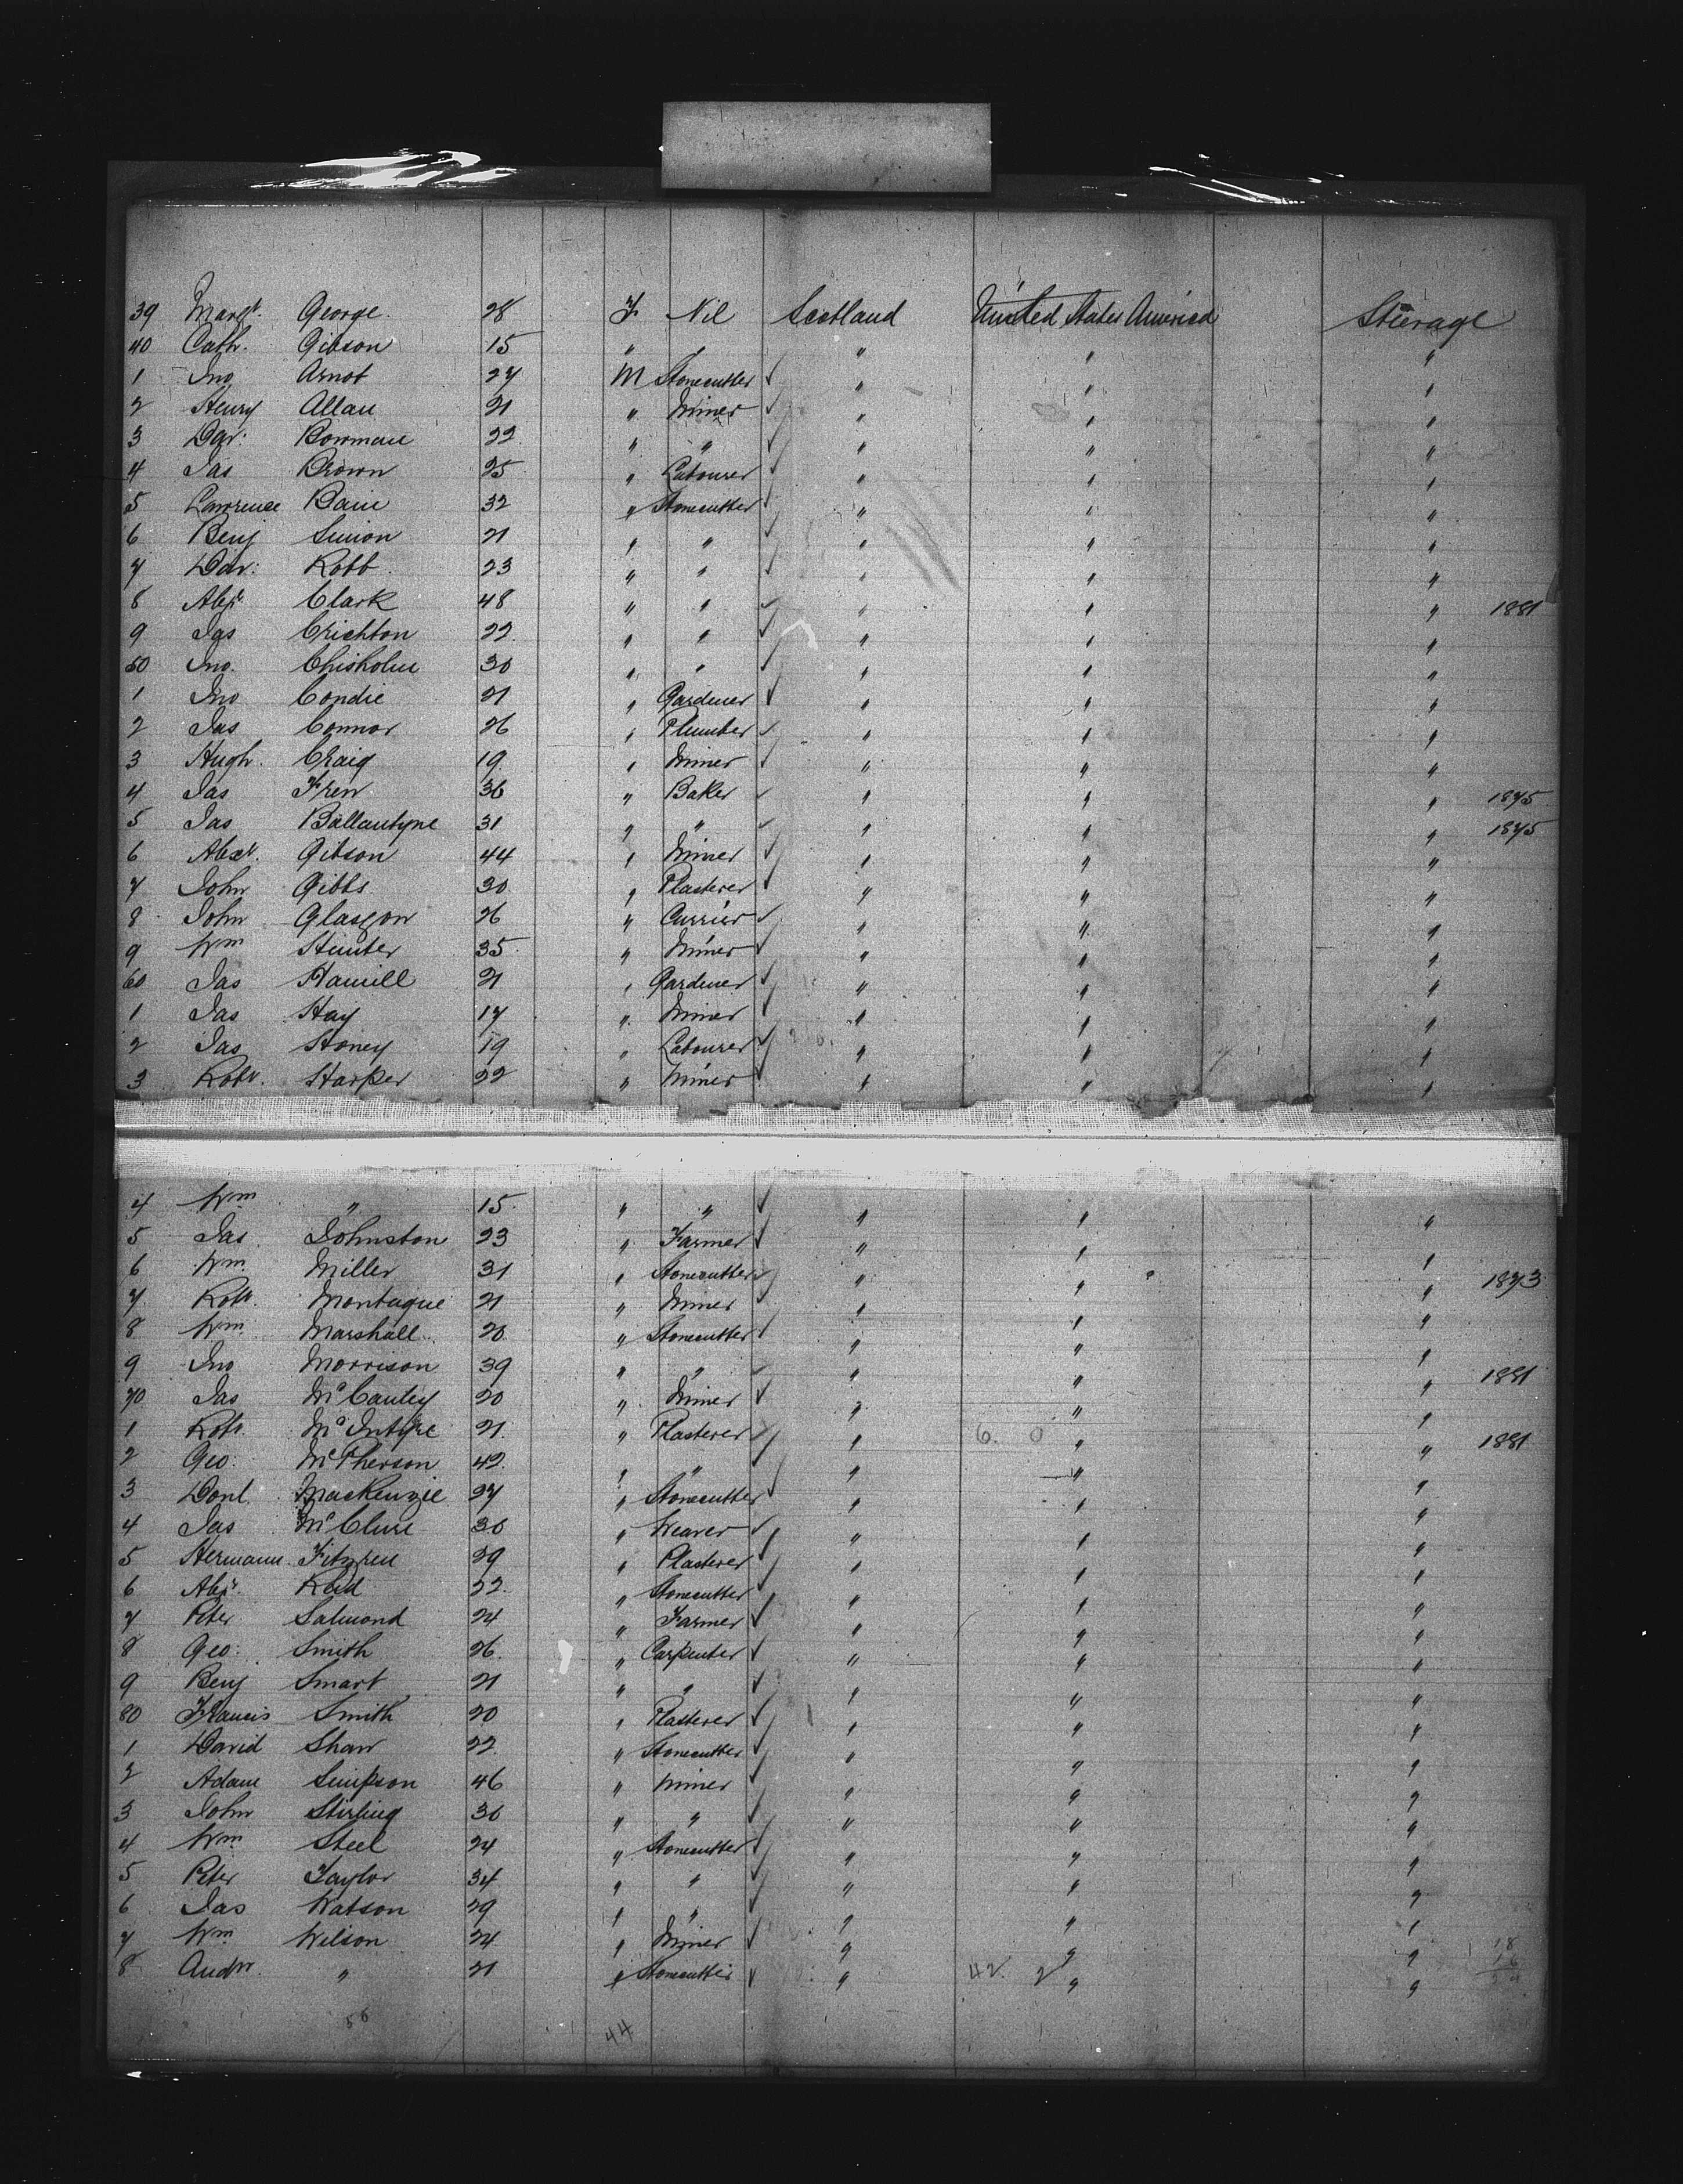 39 Margt. George. 28 F Nil Scotland United States America Steerage
40 Cath. Gibson 15 " " " " "
1 Jno Arnot 27 M Stonecutter ✓ " " "
2 Henry Allan 21 " Miner ✓ " " "
3 Dav: Bowman 22 " " ✓ " " "
4 Jas Brown 25 " Labourer ✓ " " "
5 Lawrence Bain 32 " Stonecutter ✓ " " "
6 Benj Simon 21 " " ✓ " " "
7 Dav: Robb 23 " " ✓ " " "
8 Alexr. Clark 48 " " ✓ " " " 1881
9 Jas Crichton 22 " " ✓ " " "
50 Jno. Chisholm 30 " " ✓ " " "
1 Jno Condie 21 " Gardener ✓ " " "
2 Jas Connor 26 " Plumber ✓ " " "
3 Hugh Craig 19 " Miner ✓ " " "
4 Jas Frew 36 " Baker ✓ " " " 1875
5 Jas Ballantyne 31 " " ✓ " " " 1875
6 Alexr. Gibson 44 " Miner ✓ " " "
7 John Gibbs 30 " Plasterer ✓ " " "
8 John Glasgow 26 " Currier ✓ " " "
9 Wm Hunter 35 " Miner ✓ " " "
60 Jas Hamill 21 " Gardener ✓ " " "
1 Jas Hay 17 " Miner ✓ " " "
2 Jas Honey 19 " Labourer ✓ " " "
3 Robt. Harper 22 " Miner ✓ " " "
4 Wm " 15 " " ✓ " " "
5 Jas Johnston 23 " Farmer ✓ " " "
6 Wm Miller 31 " Stonecutter ✓ " " " 1873
7 Robt. Montague 21 " Miner ✓ " " "
8 Wm Marshall 20 " Stonecutter ✓ " " "
9 Jno Morrison 39 " " ✓ " " " 1881
70 Jas McCauley 20 " Miner ✓ " " "
1 Robt McIntyre 21 " Plasterer ✓ " 6. 0 " " 1881
2 Geo: McPherson 42 " " ✓ " " "
3 Donl. MacKenzie 27 " Stonecutter ✓ " " "
4 Jas McClure 30 " Weaver ✓ " " "
5 Hermann 29 " Plasterer ✓ " " "
6 Alexr. Reid 22 " Stonecutter ✓ " " "
7 Peter Salmond 24 " Farmer ✓ " " "
8 Geo: Smith 26 " Carpenter ✓ " " "
9 Benj Smart 21 " " ✓ " " "
80 Francis Smith 20 " Plasterer ✓ " " "
1 David Shaw 22 " Stonecutter ✓ " " "
2 Adam Simpson 46 " Miner ✓ " " "
3 John Stirling 30 " " ✓ " " "
4 Wm Steel 24 " Stonecutter ✓ " " "
5 Peter Taylor 34 " " ✓ " " "
6 Jas Watson 29 " " ✓ " " "
7 Wm Wilson 24 " Miner ✓ " " "
8 Andw. " 21 " Stonecutter ✓ " 42. 2 " "
56 44